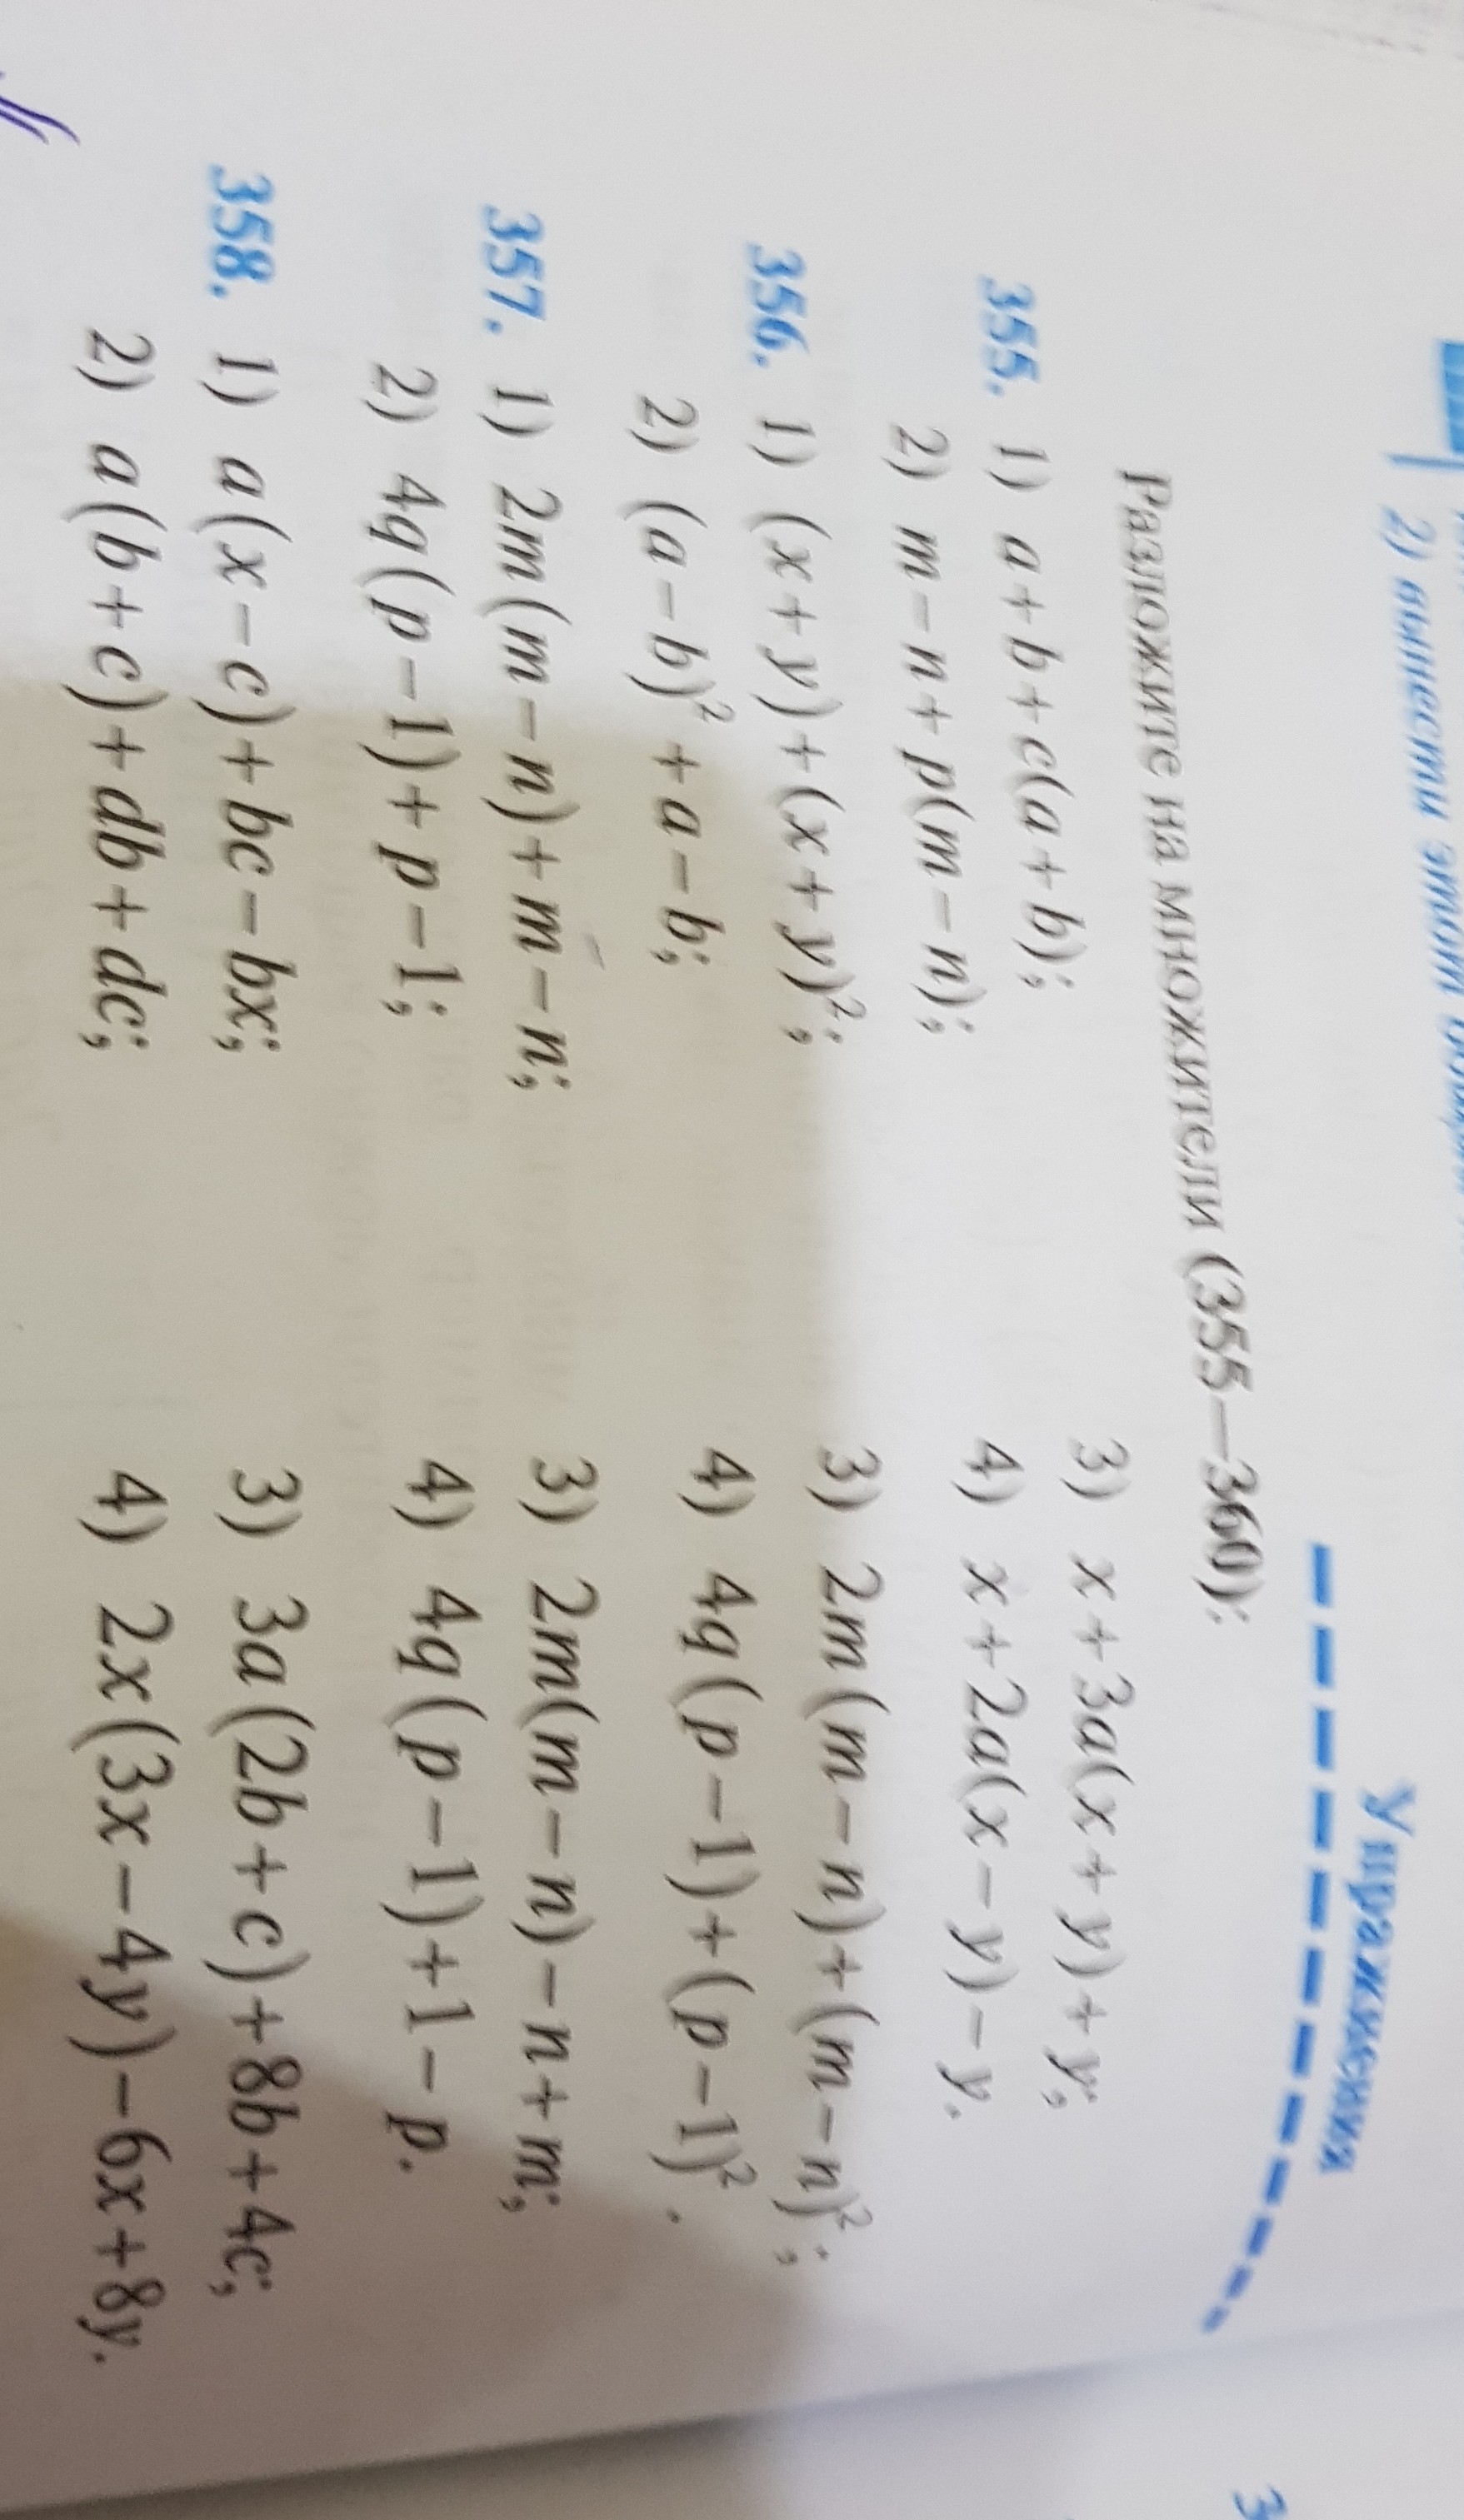 2) вынести этот
Упражнения
Разложите на множители (355—360):
355. 1) a + b + c(a + b); 3) x + 3a(x + y) + y;
2) m − n + p(m − n); 4) x + 2a(x − y) − y.
356. 1) (x + y) + (x + y)²; 3) 2m(m − n) + (m − n)²;
2) (a − b)² + a − b; 4) 4q(p − 1) + (p − 1)².
357. 1) 2m(m − n) + m − n; 3) 2m(m − n) − n + m;
2) 4q(p − 1) + p − 1; 4) 4q(p − 1) + 1 − p.
358. 1) a(x − c) + bc − bx; 3) 3a(2b + c) + 8b + 4c;
2) a(b + c) + db + dc; 4) 2x(3x − 4y) − 6x + 8y.